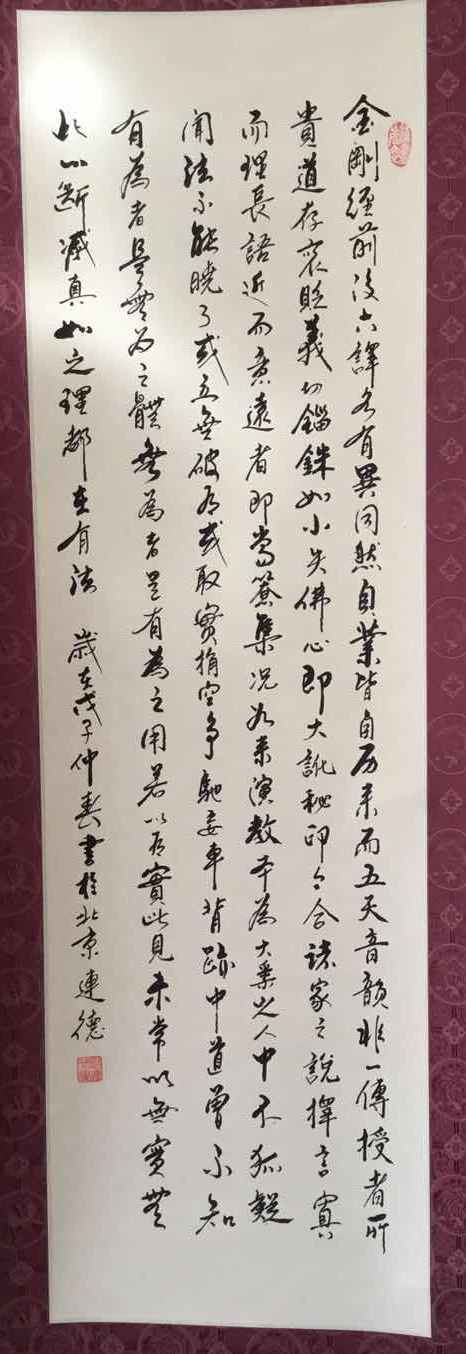 金剛經前後六譯各有異同然自業皆自历来而五天音韻非一傳授者所
貴道存褒貶義切錙銖如小失佛心即大訛秘印今合諸家之說擇言寡
而理長語近而意遠者即當纂集况如来演教本為大乗之人中不狐疑
聞法不能曉了或立無破有或取實捐空争馳妄車背跡中道曽不知
有為者是無为之體無為者是有為之用若以有實此見未常以無實無
此以斷滅真如之理都在有法 歲在戊子仲春書於北京連德